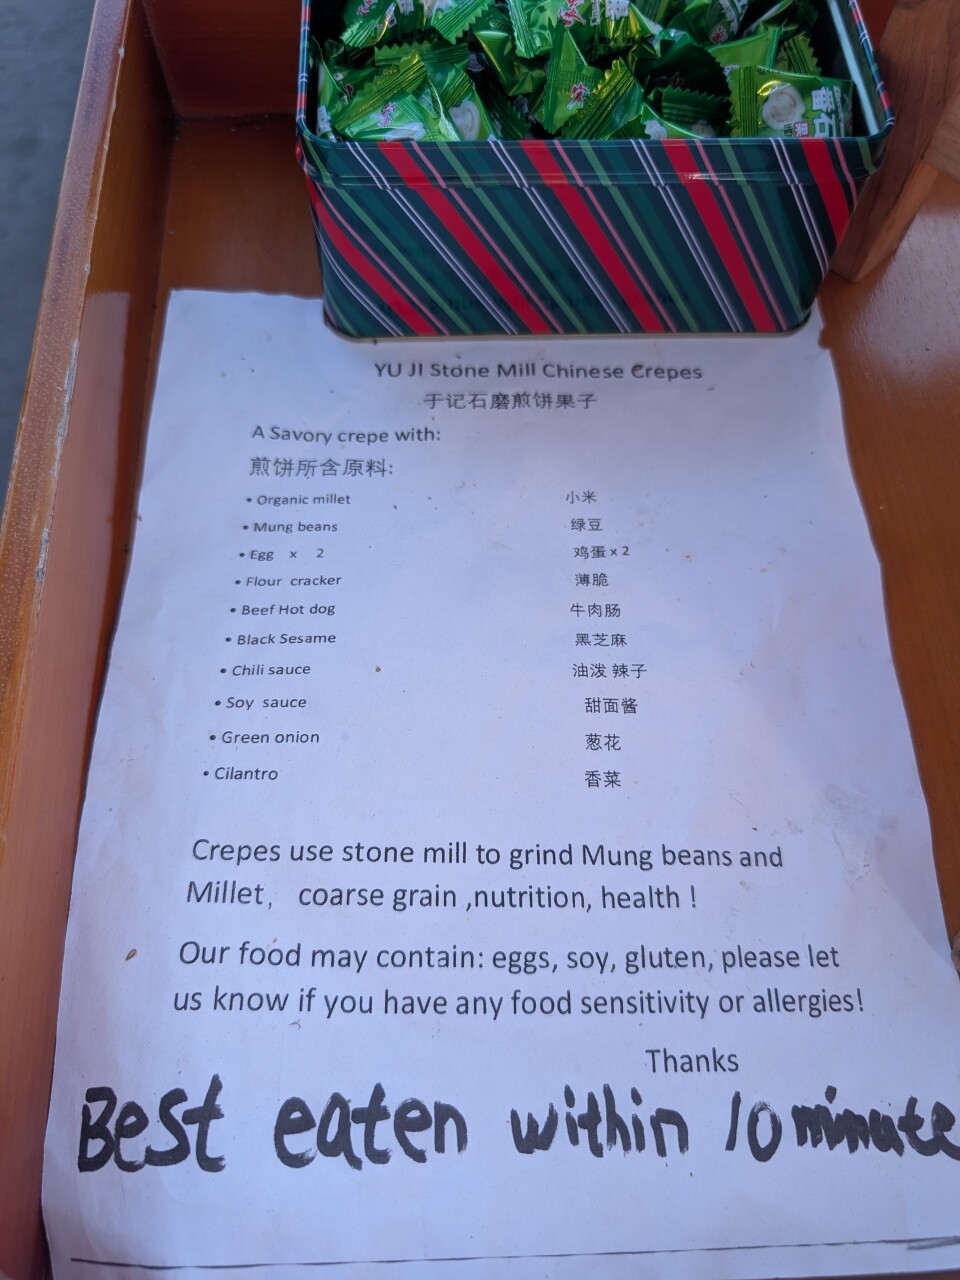 YU JI Stone Mill Chinese Crepes
于记石磨煎饼果子
A Savory crepe with:
煎饼所含原料:
• Organic millet 小米
• Mung beans 绿豆
• Egg x 2 鸡蛋 x 2
• Flour cracker 薄脆
• Beef Hot dog 牛肉肠
• Black Sesame 黑芝麻
• Chili sauce 油泼 辣子
• Soy sauce 甜面酱
• Green onion 葱花
• Cilantro 香菜
Crepes use stone mill to grind Mung beans and
Millet， coarse grain ,nutrition, health !
Our food may contain: eggs, soy, gluten, please let
us know if you have any food sensitivity or allergies!
Thanks
Best eaten within 10 minute